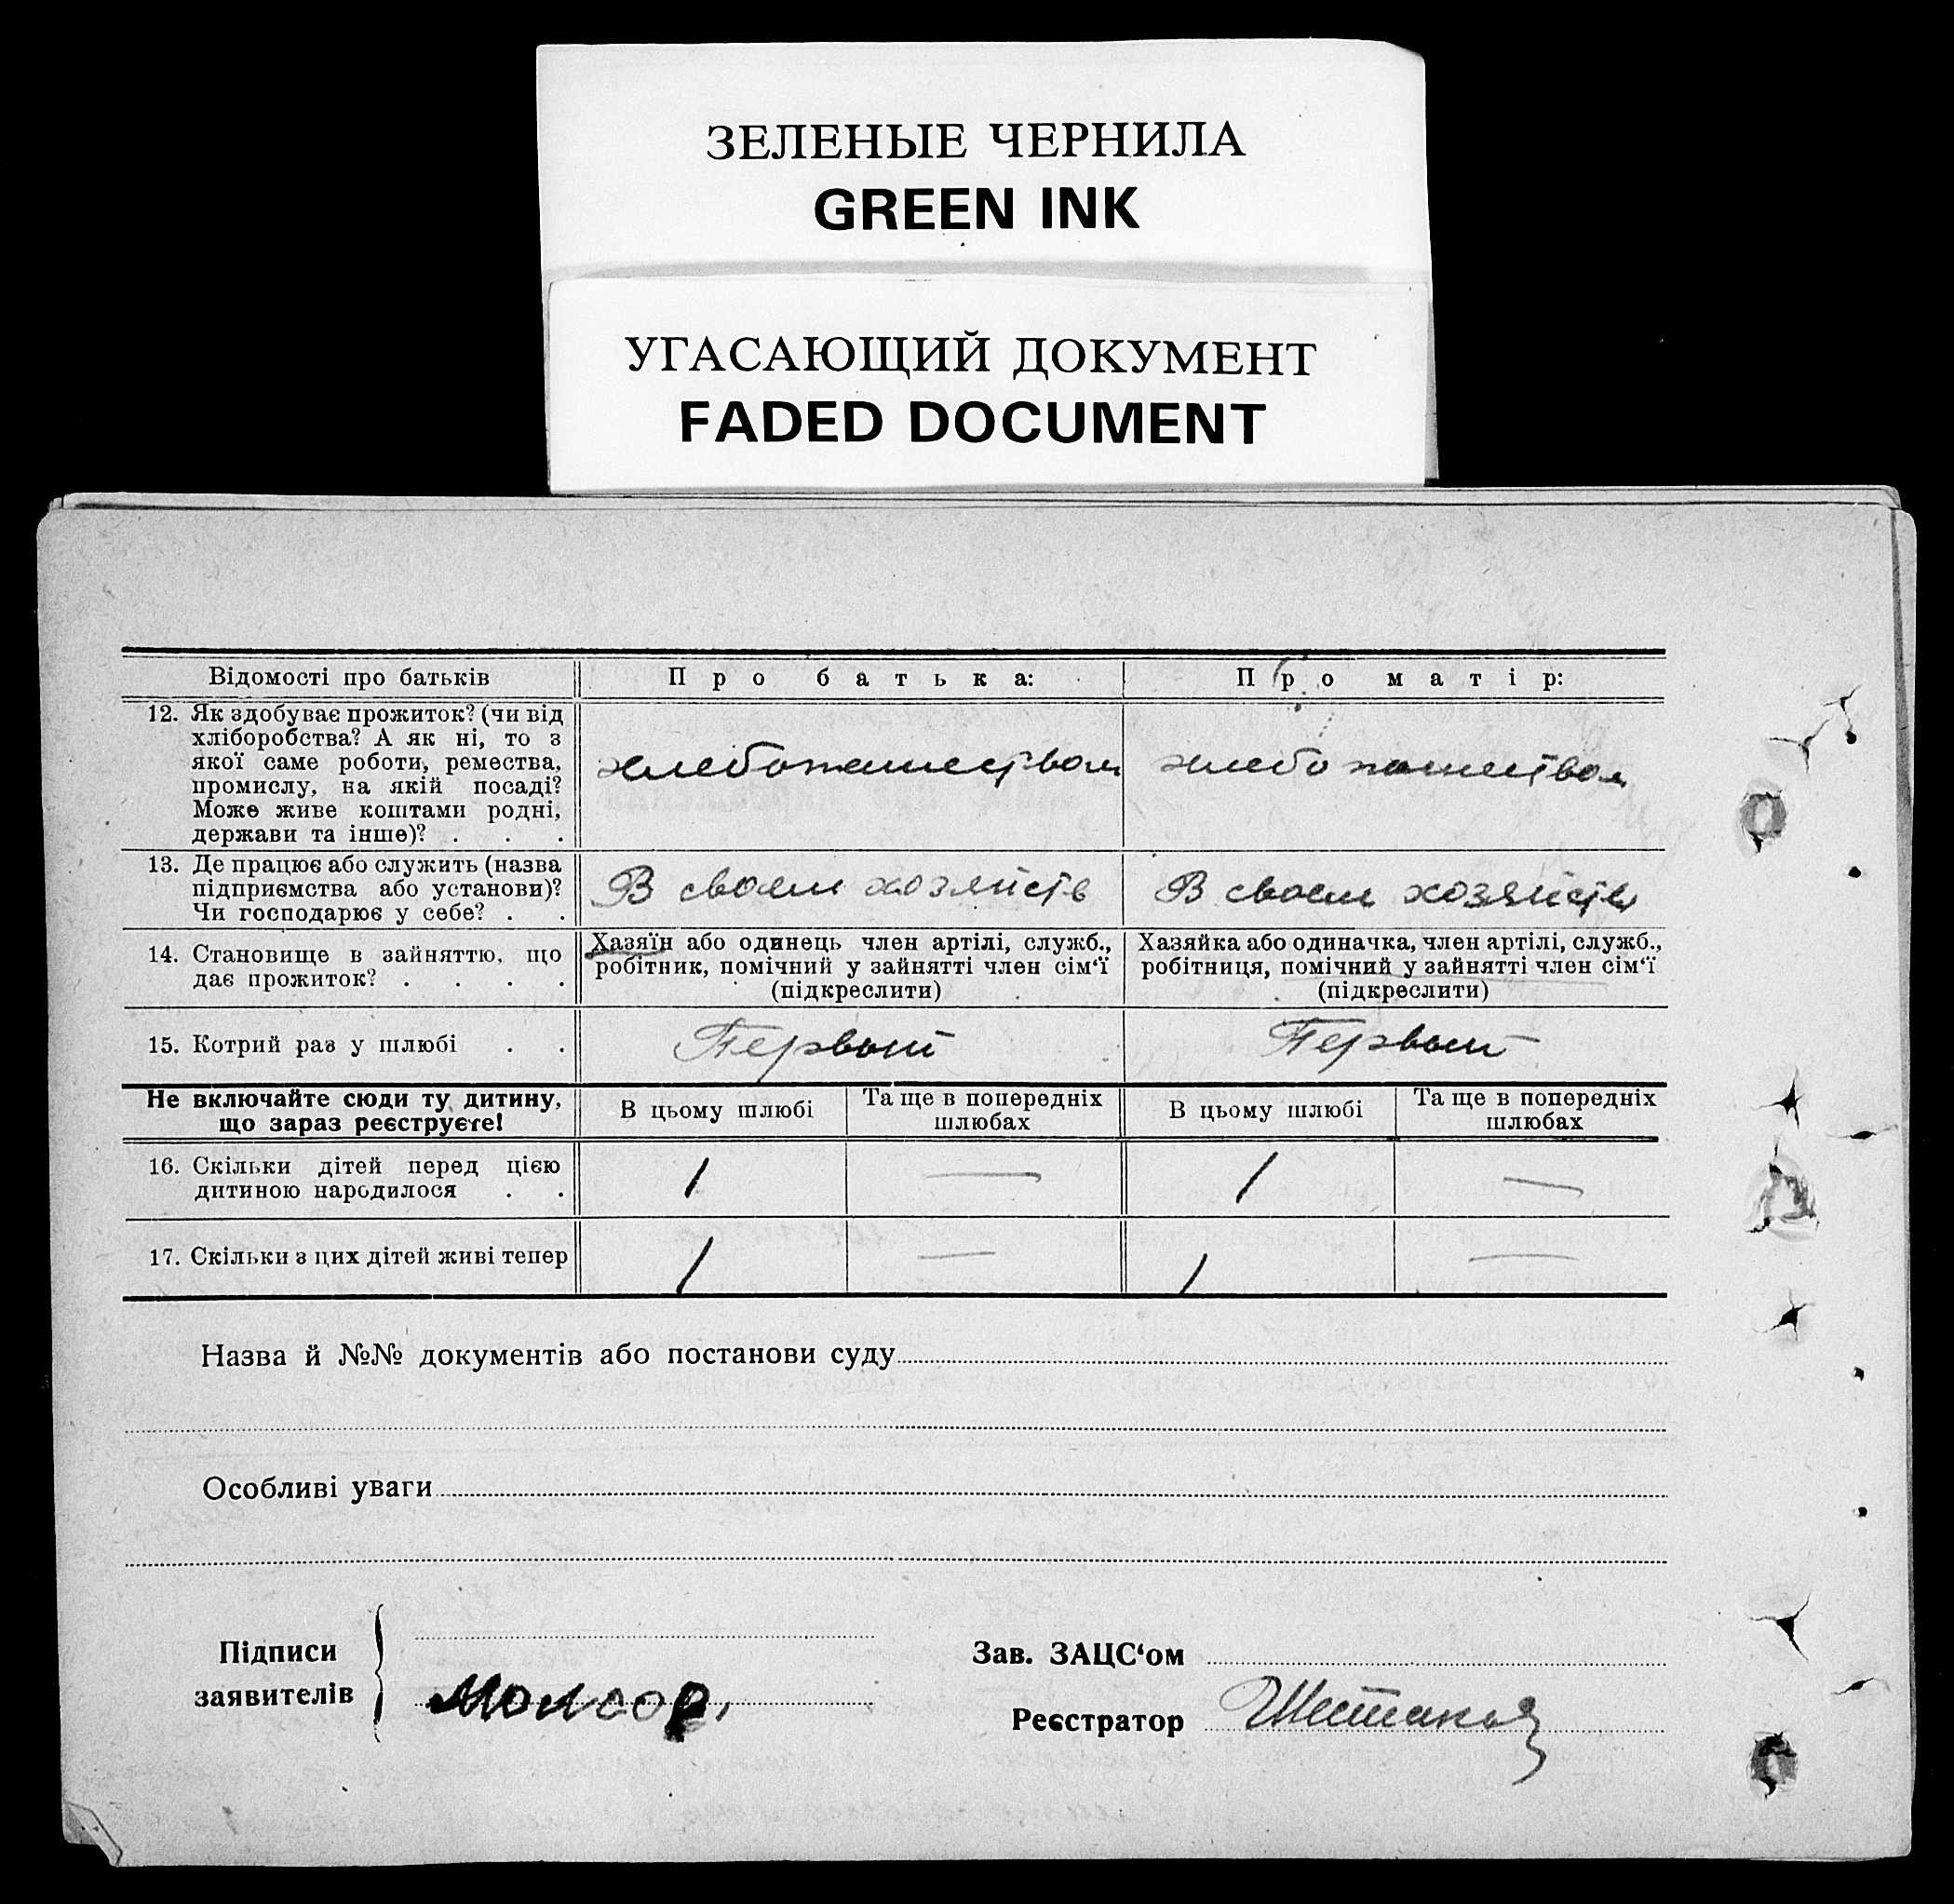 ЗЕЛЕНЫЕ ЧЕРНИЛА
GREEN INK
УГАСАЮЩИЙ ДОКУМЕНТ
FADED DOCUMENT
Відомості про батьків
Про батька:
Про матір:
12. Як здобуває прожиток? (чи від
хліборобства? А як ні, то з
якої саме роботи, ремества,
промислу, на якій посаді?
Може живе коштами родні,
держави та інше)? . . .
хлебопашеством
хлебопашеством
13. Де працює або служить (назва
підприємства або установи)?
Чи господарює у себе? . .
В своем хозяйств
В своем хозяйств
14. Становище в зайняттю, що
дає прожиток? . . . .
Хазяїн або одинець член артілі, служб.,
робітник, помічний у зайнятті член сім‘ї
(підкреслити)
Хазяйка або одиначка, член артілі, служб.,
робітниця, помічний у зайнятті член сім‘ї
(підкреслити)
15. Котрий раз у шлюбі . .
Первый
Первый
Не включайте сюди ту дитину,
що зараз реєструєте!
В цьому шлюбі
Та ще в попередніх
шлюбах
В цьому шлюбі
Та ще в попередніх
шлюбах
16. Скільки дітей перед цією
дитиною народилося . .
1 — 1 —
17. Скільки з цих дітей живі тепер
1 — 1 —
Назва й №№ документів або постанови суду
Особливі уваги
Підписи
заявителів
Зав. ЗАЦС‘ом
Реєстратор